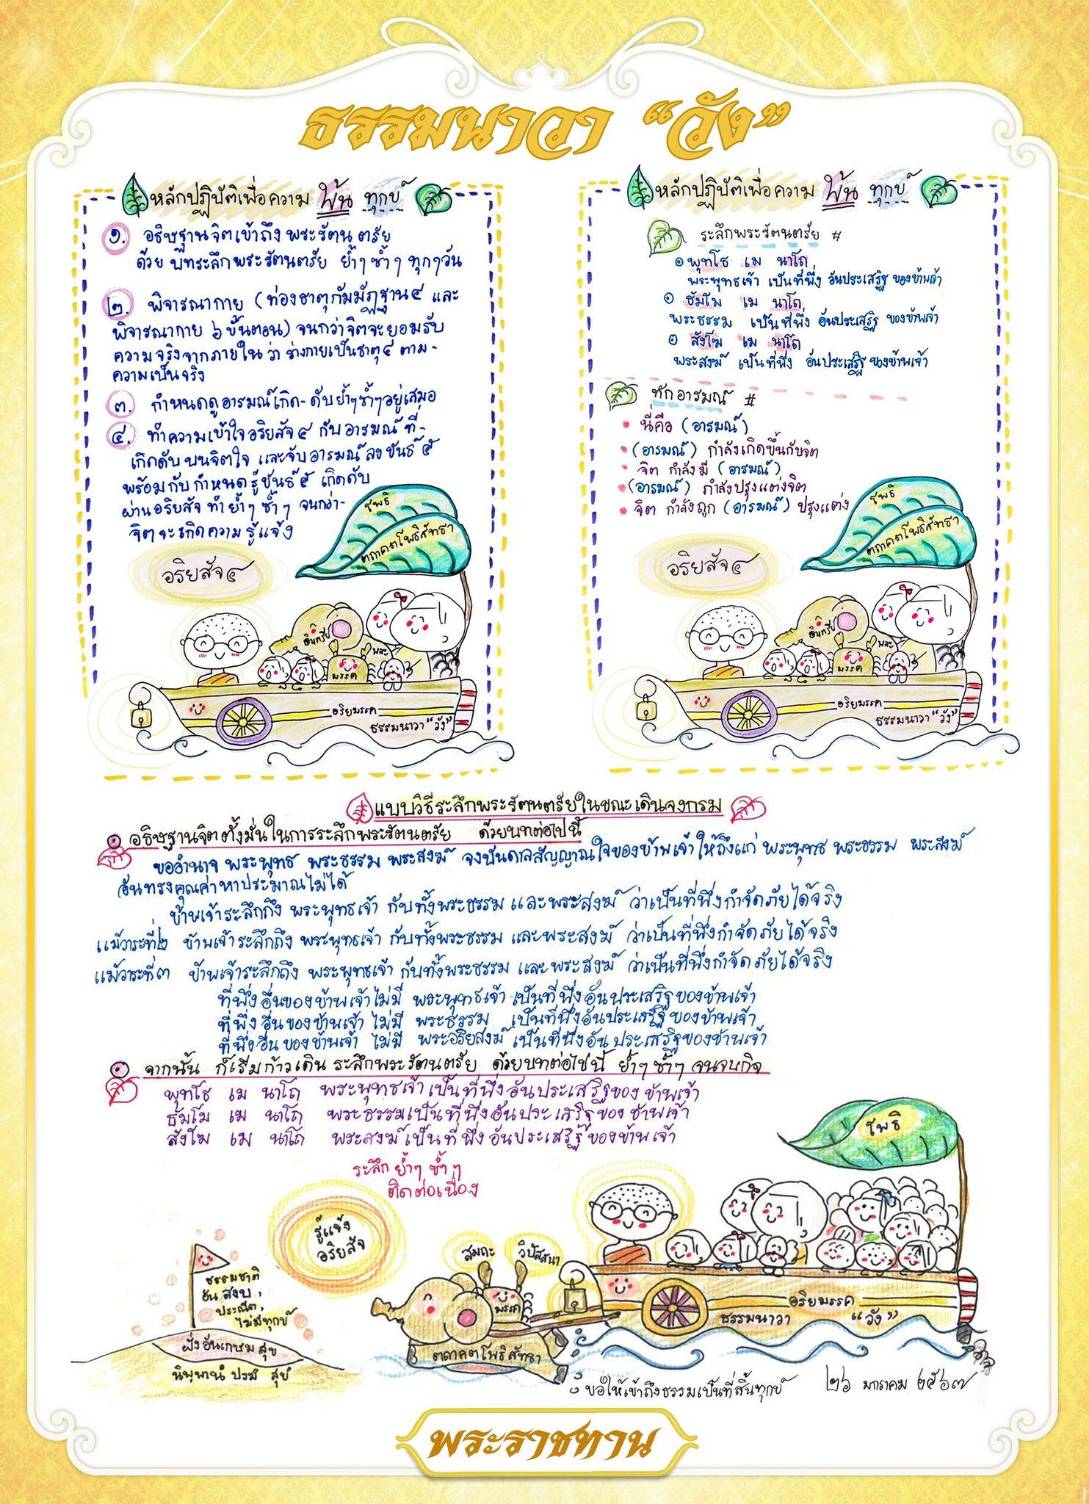 ธรรมนาวา “วัง”
หลักปฏิบัติเพื่อความ พ้น ทุกข์
๑. อธิษฐานจิตเข้าถึง พระรัตนตรัย
ด้วย บทระลึกพระรัตนตรัย ย้ำๆ ซ้ำๆ ทุกๆวัน
๒. พิจารณากาย (ท่องธาตุกัมมัฏฐาน๔ และ
พิจารณากาย ๖ ขั้นตอน) จนกว่าจิตจะยอมรับ
ความจริงจากภายใน ว่า ร่างกายเป็นธาตุ๔ ตาม-
ความเป็นจริง
๓. กำหนดดูอารมณ์เกิด-ดับย้ำๆซ้ำๆอยู่เสมอ
๔. ทำความเข้าใจอริยสัจ๔ กับอารมณ์ ที่-
เกิดดับ บนจิตใจ และจับ อารมณ์ ลง ขันธ์ ๕
พร้อมกับ กำหนด รู้ ขันธ์ ๕ เกิดดับ
ผ่านอริยสัจ ทำ ย้ำๆ ซ้ำๆ จนกว่า-
จิตจะเกิดความ รู้แจ้ง
อริยสัจ๔
โพธิ
ตถาคตโพธิสัทธา
อินทรีย์
พละ
มรรค
อริยมรรค
ธรรมนาวา "วัง"
หลักปฏิบัติเพื่อความ พ้น ทุกข์
ระลึกพระรัตนตรัย #
๑ พุทโธ เม นาโถ
พระพุทธเจ้า เป็นที่พึ่ง อันประเสริฐ ของข้าพเจ้า
๑ ธัมโม เม นาโถ
พระธรรม เป็นที่พึ่ง อันประเสริฐ ของข้าพเจ้า
๑ สังโฆ เม นาโถ
พระสงฆ์ เป็นที่พึ่ง อันประเสริฐ ของข้าพเจ้า
ทักอารมณ์ #
• นี่คือ (อารมณ์)
• (อารมณ์) กำลังเกิดขึ้นกับจิต
• จิต กำลังมี (อารมณ์)
• (อารมณ์) กำลังปรุงแต่งจิต
• จิต กำลังถูก (อารมณ์) ปรุงแต่ง
อริยสัจ๔
โพธิ
ตถาคตโพธิสัทธา
อินทรีย์
พละ
มรรค
อริยมรรค
ธรรมนาวา "วัง"
แบบวิธีระลึกพระรัตนตรัยในขณะเดินจงกรม
อธิษฐานจิตตั้งมั่นในการระลึกพระรัตนตรัย ด้วยบทต่อไปนี้
ขออำนาจ พระพุทธ พระธรรม พระสงฆ์ จงบันดาลสัญญาณใจของข้าพเจ้าให้ถึงแก่ พระพุทธ พระธรรม พระสงฆ์
อันทรงคุณค่าหาประมาณไม่ได้
ข้าพเจ้าระลึกถึง พระพุทธเจ้า กับทั้งพระธรรม และ พระสงฆ์ ว่าเป็นที่พึ่งกำจัดภัยได้จริง
แม้วาระที่๒ ข้าพเจ้าระลึกถึง พระพุทธเจ้า กับทั้งพระธรรม และพระสงฆ์ ว่าเป็นที่พึ่งกำจัดภัยได้จริง
แม้วาระที่๓ ข้าพเจ้าระลึกถึง พระพุทธเจ้า กับทั้งพระธรรม และ พระสงฆ์ ว่าเป็นที่พึ่งกำจัดภัยได้จริง
ที่พึ่งอื่นของข้าพเจ้าไม่มี พระพุทธเจ้า เป็นที่พึ่งอันประเสริฐของข้าพเจ้า
ที่พึ่งอื่นของข้าพเจ้า ไม่มี พระธรรม เป็นที่พึ่งอันประเสริฐของข้าพเจ้า
ที่พึ่งอื่นของข้าพเจ้า ไม่มี พระอริยสงฆ์ เป็นที่พึ่งอันประเสริฐของข้าพเจ้า
จากนั้น ก็เริ่มก้าวเดิน ระลึกพระรัตนตรัย ด้วยบทต่อไปนี้ ย้ำๆ ซ้ำๆ จนจบกิจ
พุทโธ เม นาโถ พระพุทธเจ้าเป็นที่พึ่งอันประเสริฐของข้าพเจ้า
ธัมโม เม นาโถ พระธรรมเป็นที่พึ่งอันประเสริฐของข้าพเจ้า
สังโฆ เม นาโถ พระสงฆ์เป็นที่พึ่งอันประเสริฐของข้าพเจ้า
ระลึก ย้ำๆ ซ้ำๆ
ติดต่อเนื่อง
โพธิ
รู้แจ้ง
อริยสัจ
สมถะ
วิปัสสนา
มรรค
ธรรมชาติ
อัน สงบ,
ประณีต,
ไม่มีทุกข์
ฝั่งอันเกษม สุข
นิพพานํ ปรมํ สุขํ
ตถาคตโพธิสัทธา
อริยมรรค
ธรรมนาวา "วัง"
ขอให้เข้าถึงธรรมเป็นที่สิ้นทุกข์ ๒๖ มกราคม ๒๕๖๗
พระราชทาน